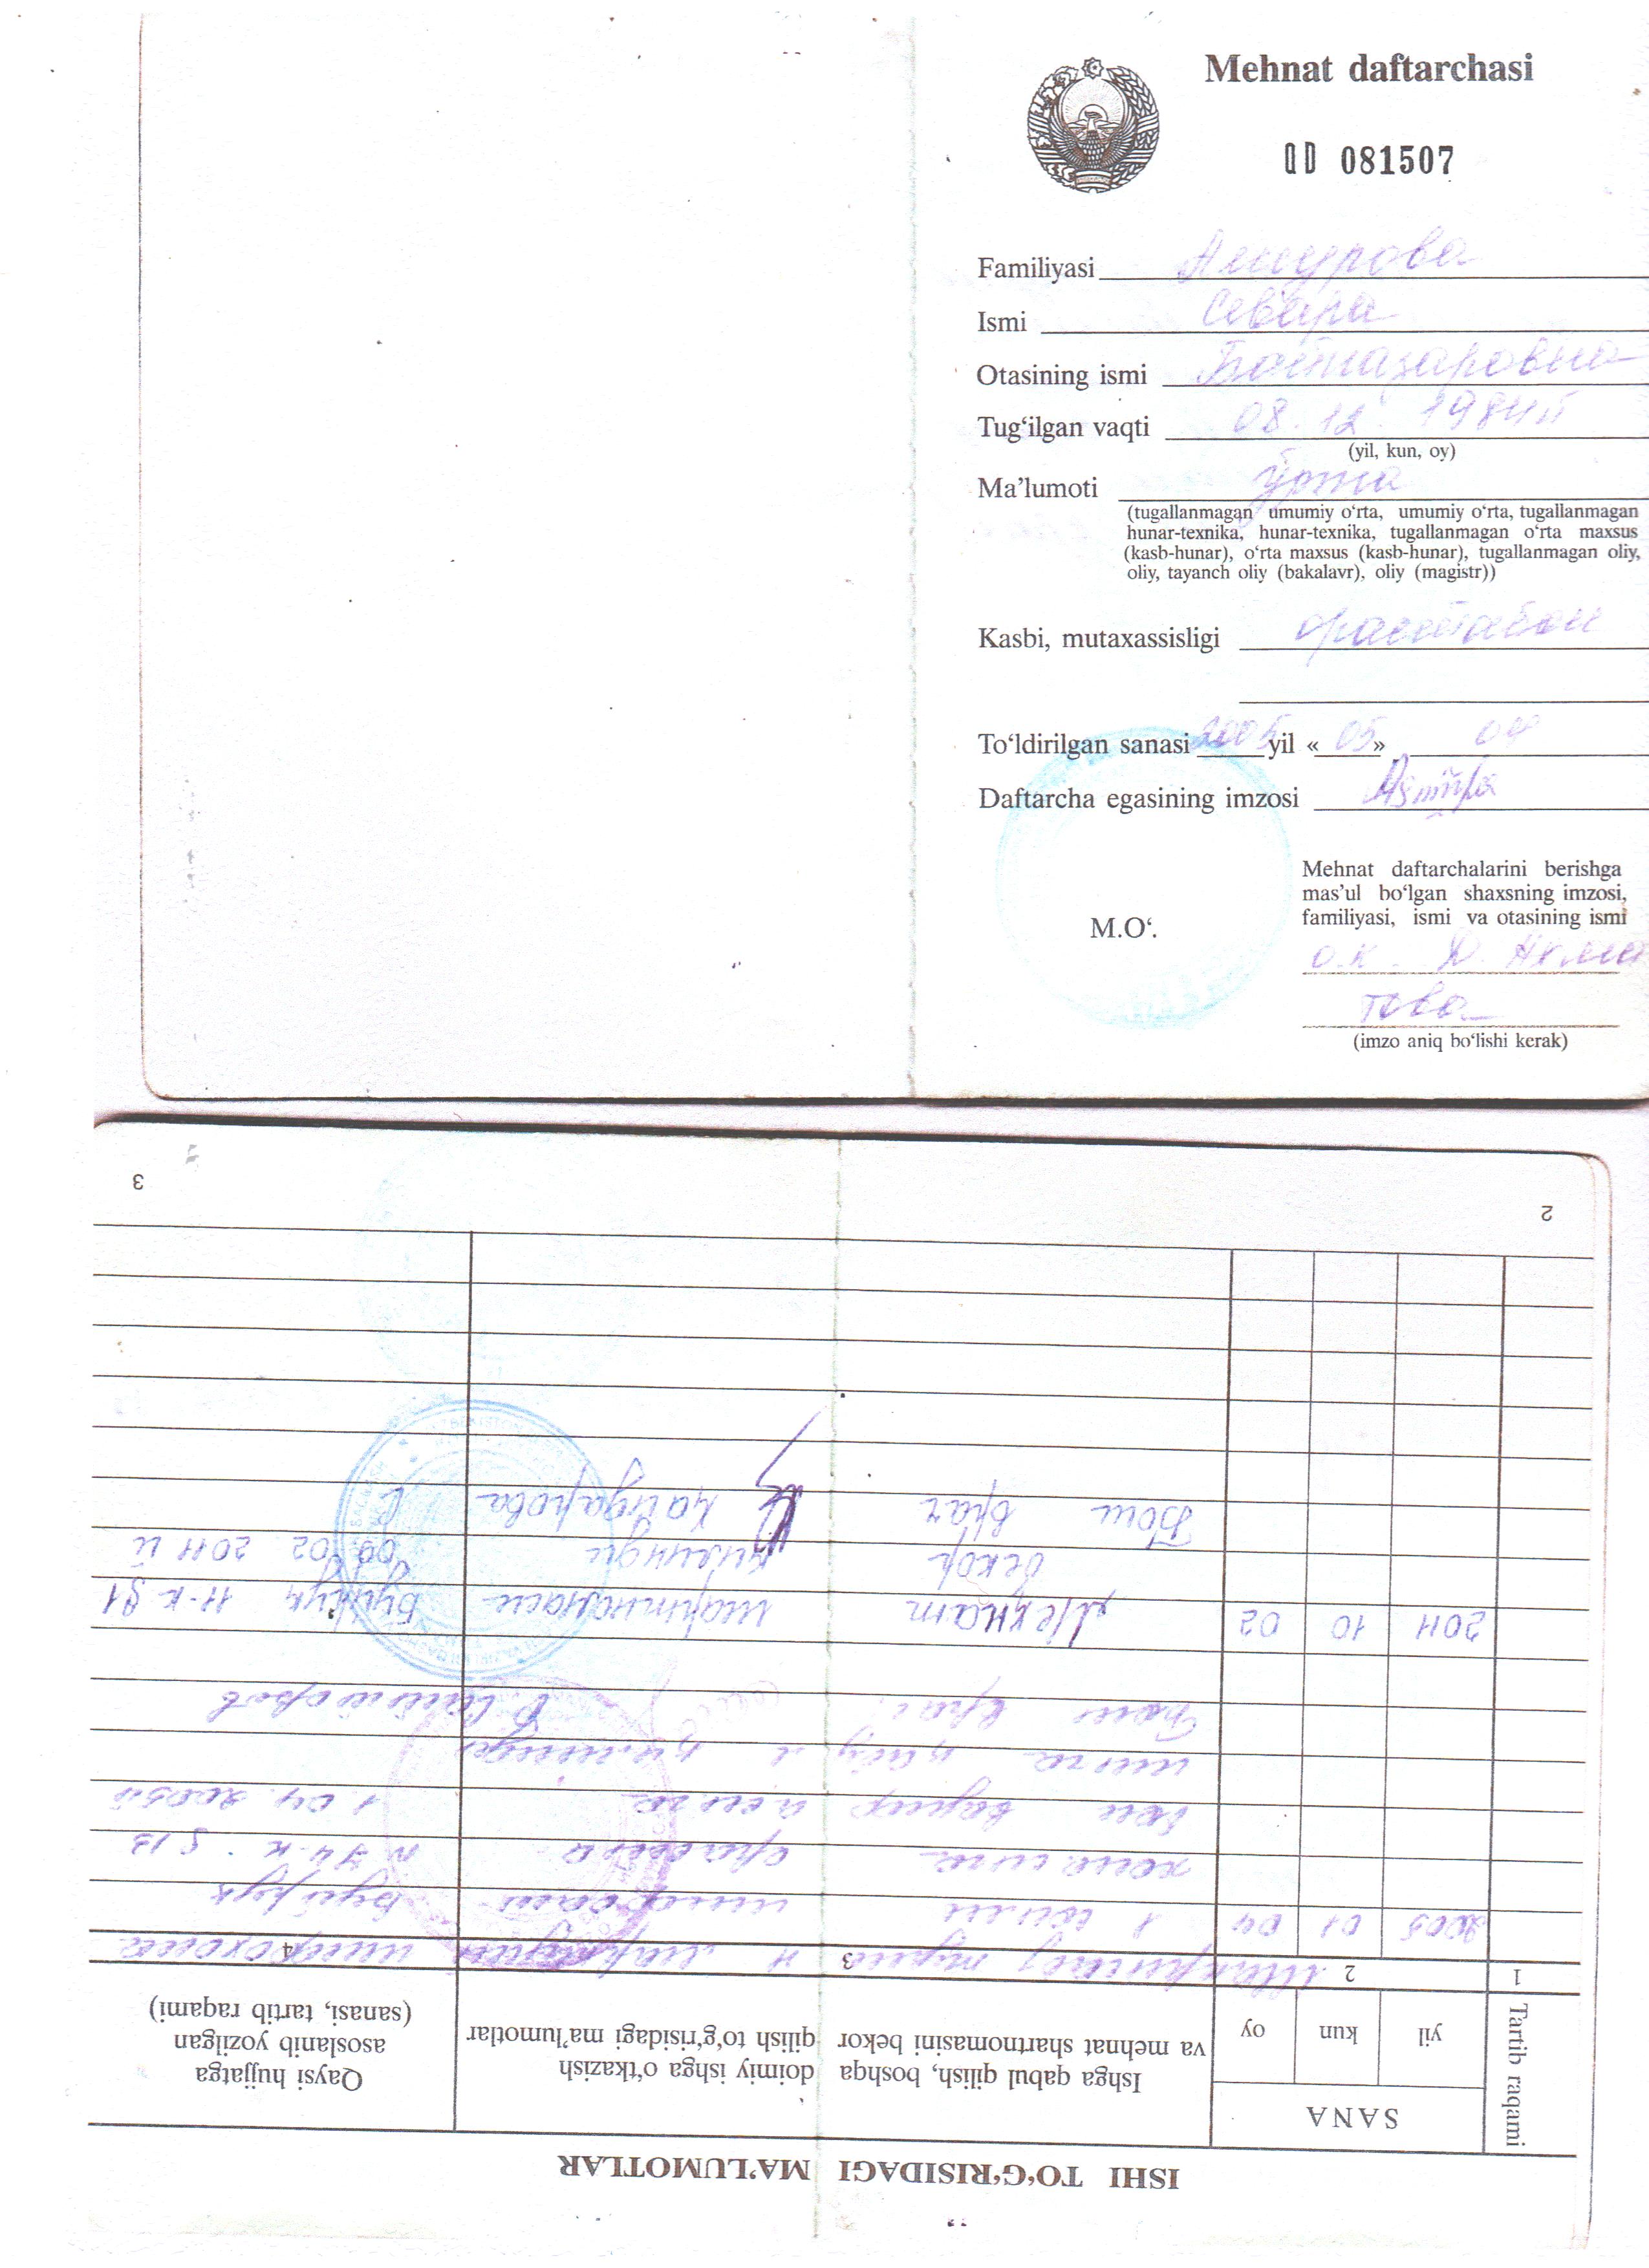 Mehnat daftarchasi
QD 081507
Familiyasi Ашурова
Ismi Севара
Otasining ismi Бойназаровна
Tug‘ilgan vaqti 08. 12. 1984й
(yil, kun, oy)
Ma’lumoti ўрта
(tugallanmagan umumiy o‘rta, umumiy o‘rta, tugallanmagan
hunar-texnika, hunar-texnika, tugallanmagan o‘rta maxsus
(kasb-hunar), o‘rta maxsus (kasb-hunar), tugallanmagan oliy,
oliy, tayanch oliy (bakalavr), oliy (magistr))
Kasbi, mutaxassisligi
To‘ldirilgan sanasi 2005 yil « 05 » 04
Daftarcha egasining imzosi
Mehnat daftarchalarini berishga
mas’ul bo‘lgan shaxsning imzosi,
familiyasi, ismi va otasining ismi
M.O‘.
о.к. Д. Ахма
това
(imzo aniq bo‘lishi kerak)
ISHI TO‘G‘RISIDAGI MA’LUMOTLAR
Tartib raqami
SANA
yil kun oy
Ishga qabul qilish, boshqa doimiy ishga o‘tkazish
va mehnat shartnomasini bekor qilish to‘g‘risidagi ma’lumotlar
Qaysi hujjatga
asoslanib yozilgan
(sanasi, tartib raqami)
1 2 3 4
шифохона
2005 01 04 1 Буйруқ
хонасига N 74-к
1.04.2005й
ишга қабул қилинди
Бош врач
2011 10 02 Мехнат шартномаси Буйруқ 11-к
бекор қилинди 02 2011 й
Бош врач Хайдарова С
2
3